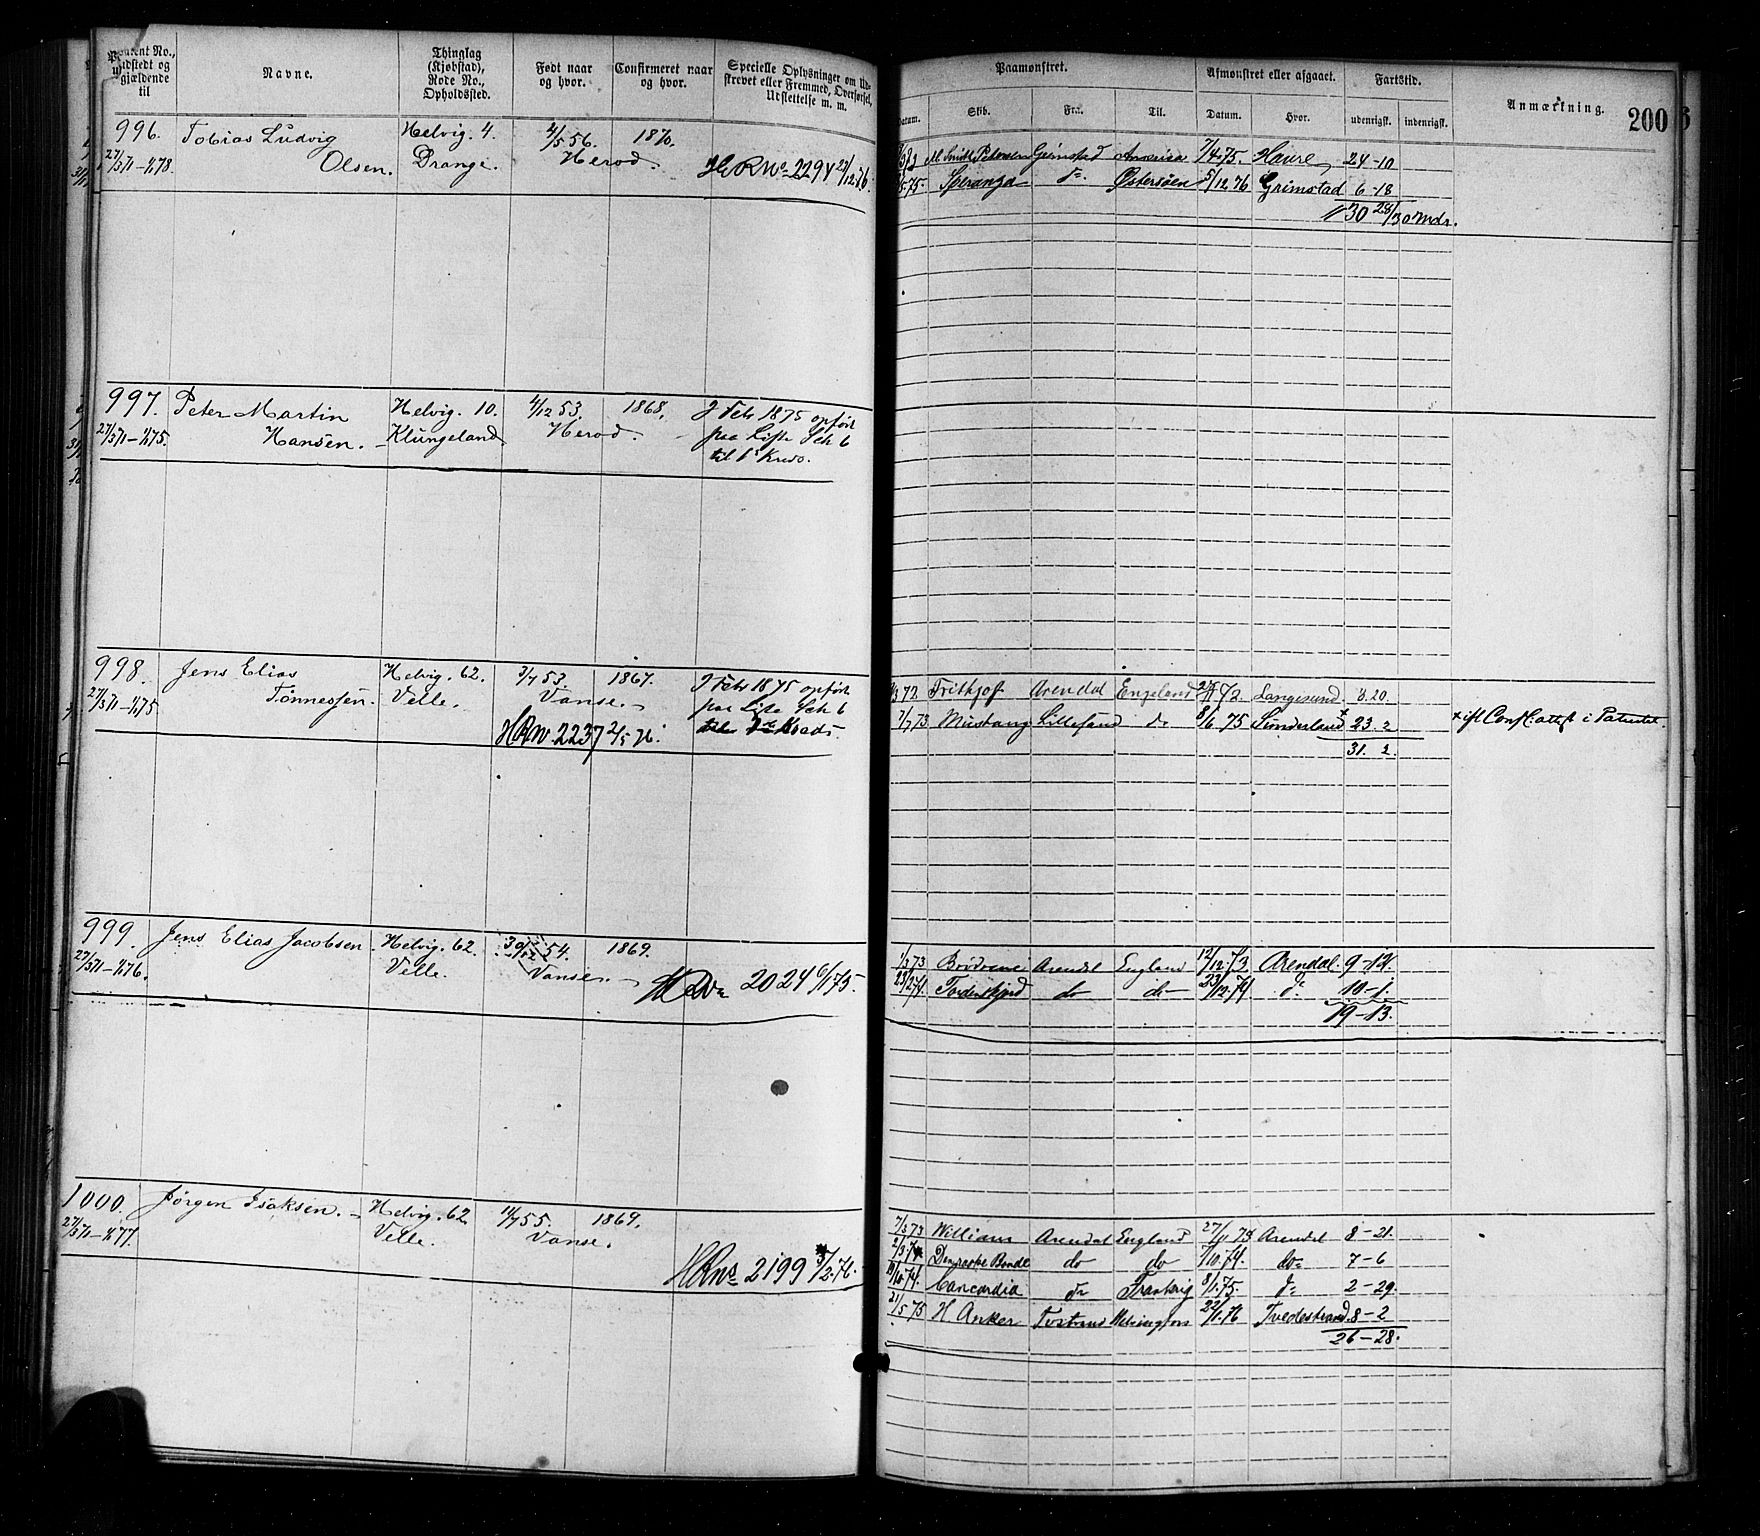 Patent No., udstedt og gjældende til
Navne.
Thinglag (Kjøbstad), Rode No., Opholdssted.
Født naar og hvor.
Confirmeret naar og hvor.
Specielle Oplysninger om Udskrevet eller Fremmed, Overførsel, Udslettelse m. m.
Paamønstret.
Afmønstret eller afgaaet.
Fartstid.
Anmærkning.
200
Datum. Skib. Fra. Til. Datum. Hvor. udenrigsk. indenrigsk.
996. Tobias Ludvig Helvig. 4. 4/5 56. 1870.
27/3 71 – 1/1 78. Olsen. Drange. Herod. HR No 2294 22/12 76.
Smith Petersen Grimstad America 7/4 75. Havre 24-10
Speranza do Østersøen 5/12 76 Grimstad 6-18
30 28/30 Mdr.
997. Peter Martin Helvig. 10. 4/12 53. 1868. I Febr 1875 opført
27/3 71 – 1/1 75. Hansen. Klungeland. Herod. paa Liste
til Kreds.
998. Jens Elias Helvig. 62. 3/7 53. 1867. I Febr 1875 opført
27/3 71 – 1/1 75 Tønnessen. Velle. Vanse. paa Liste
HR No 2237 2/5 76.
72 Frithjof Arendal Engeland 72. Langesund 8.20
7/7 73 Mustang Lillesand do 8/6 75 Sunderland x 23. 2 x ifl Confl: attest i Patentet
31. 2
999. Jens Elias Jacobsen. Helvig. 62. 54. 1869.
27/3 71 – 1/1 76. Velle. Vanse. 2024 6/1 75.
1/3 73 Arendal England 12/12 73 Arendal. 9-12.
23/2 74. Tordenskjold do do 23/12 74 do 10-1.
19-13.
1000. Jørgen Isaksen. Helvig. 62. 11/7 55. 1869.
27/3 71 – 1/1 77. Velle. Vanse.
HR No 2199 /2 76.
7/3 73 William Arendal England 27/11 73 Arendal 8-21.
2/3 74 Bonde do do 7/10 74. do 7-6
19/10 74. Concordia do Frankrig 8/1 75. do 2-29.
21/5 75 H Anker Helsingfors 22/1 76 Tvedestrand. 8-2
26-28.